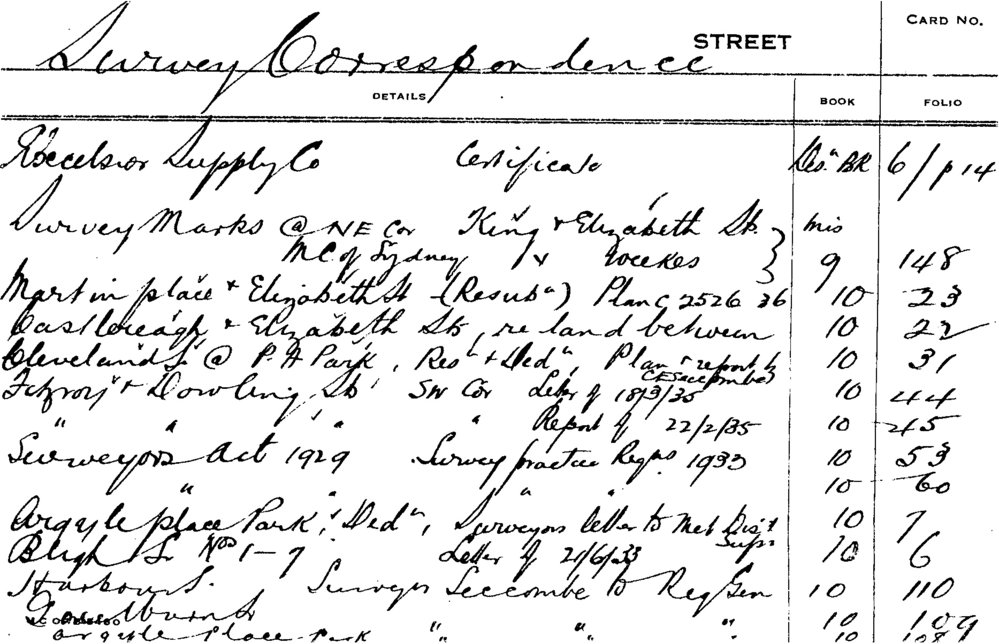 CARD NO.
Survey Correspondence STREET
DETAILS BOOK FOLIO
Excelsior Supply Co Certificate Desn BK 6/p 14
Survey Marks @ NE Cor King & Elizabeth Sts mis
MC of Sydney v Weekes 9 148
Martin place & Elizabeth St (Resubn) Plan C 2526 36 10 23
Castlereagh & Elizabeth Sts, re land between 10 22
Cleveland St @ P. A Park, Resn & Dedn, Plan & report by 10 31
CE Seccombe
Fitzroy & Dowling Sts SW Cor Letter of 18/3/35 10 44
" " " " Report of 22/2/35 10 45
Surveyors Act 1929 Survey practice Regns 1933 10 53
" " " 10 60
Argyle place Park, Dedn, Surveyors letter to Met Dist 10 7
Supr
Bligh St Nos 1-7 Letter of 21/6/33 10 6
Harbour St Surveyor Seccombe to Reg Gen 10 110
10 109
Argyle Place Park " " " 10 108